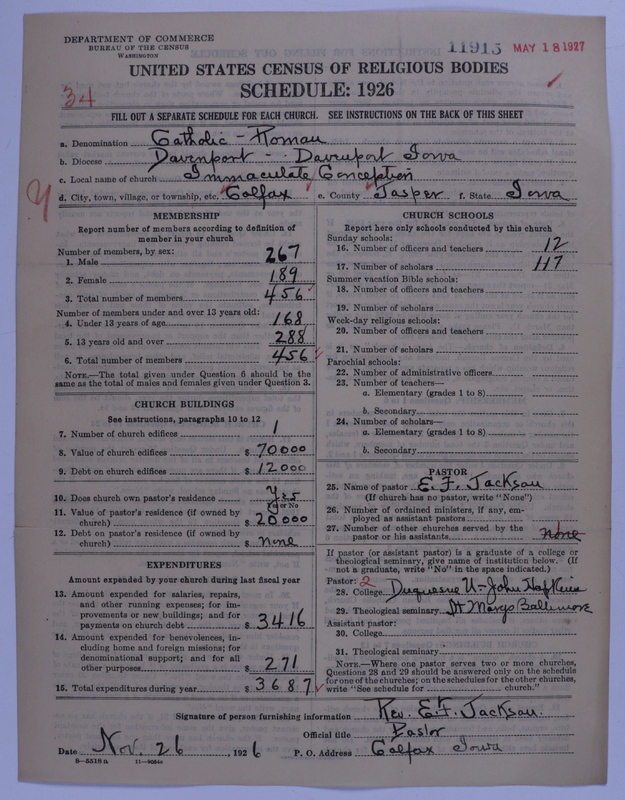 DEPARTMENT OF COMMERCE
BUREAU OF THE CENSUS
WASHINGTON
11915 MAY 18 1927
UNITED STATES CENSUS OF RELIGIOUS BODIES
SCHEDULE: 1926
34
FILL OUT A SEPARATE SCHEDULE FOR EACH CHURCH. SEE INSTRUCTIONS ON THE BACK OF THIS SHEET
a. Denomination Catholic - Roman
b. Diocese Davenport - Davenport Iowa
c. Local name of church Immaculate Conception
d. City, town, village, or township, etc. Colfax e. County Jasper f. State Iowa
MEMBERSHIP
Report number of members according to definition of
member in your church
Number of members, by sex:
1. Male 267
2. Female 189
3. Total number of members 456
Number of members under and over 13 years old:
4. Under 13 years of age 168
5. 13 years old and over 288
6. Total number of members 456
NOTE.—The total given under Question 6 should be
same as the total of males and females given under Question 3.
CHURCH BUILDINGS
See instructions, paragraphs 10 to 12
7. Number of church edifices 1
8. Value of church edifices $ 70000
9. Debt on church edifices $ 12000
10. Does church own pastor's residence Yes
Yes or No
11. Value of pastor's residence (if owned by
church) $ 20000
12. Debt on pastor's residence (if owned by
church) $ none
EXPENDITURES
Amount expended by your church during last fiscal year
13. Amount expended for salaries, repairs,
and other running expenses; for im-
provements or new buildings; and for
payments on church debt $ 3416
14. Amount expended for benevolences, in-
cluding home and foreign missions; for
denominational support; and for all
other purposes $ 271
15. Total expenditures during year $ 3687
CHURCH SCHOOLS
Report here only schools conducted by this church
Sunday schools:
16. Number of officers and teachers 12
17. Number of scholars 117
Summer vacation Bible schools:
18. Number of officers and teachers
19. Number of scholars
Week-day religious schools:
20. Number of officers and teachers
21. Number of scholars
Parochial schools:
22. Number of administrative officers
23. Number of teachers—
a. Elementary (grades 1 to 8)
b. Secondary
24. Number of scholars—
a. Elementary (grades 1 to 8)
b. Secondary
PASTOR
25. Name of pastor E. F. Jackson
(If church has no pastor, write "None")
26. Number of ordained ministers, if any, em-
ployed as assistant pastors
27. Number of other churches served by the
pastor or his assistants none
If pastor (or assistant pastor) is a graduate of a college or
theological seminary, give name of institution below. (If
not a graduate, write "No" in the space indicated.)
Pastor: 2
28. College Duquesne U - John Hopkins
29. Theological seminary St Marys Baltimore
Assistant pastor:
30. College
31. Theological seminary
NOTE.—Where one pastor serves two or more churches,
Questions 28 and 29 should be answered only on the schedule
for one of the churches; on the schedules for the other churches,
write "See schedule for church."
Signature of person furnishing information Rev. E. F. Jackson.
Official title Pastor
Date Nov. 26, 1926 P. O. Address Colfax Iowa